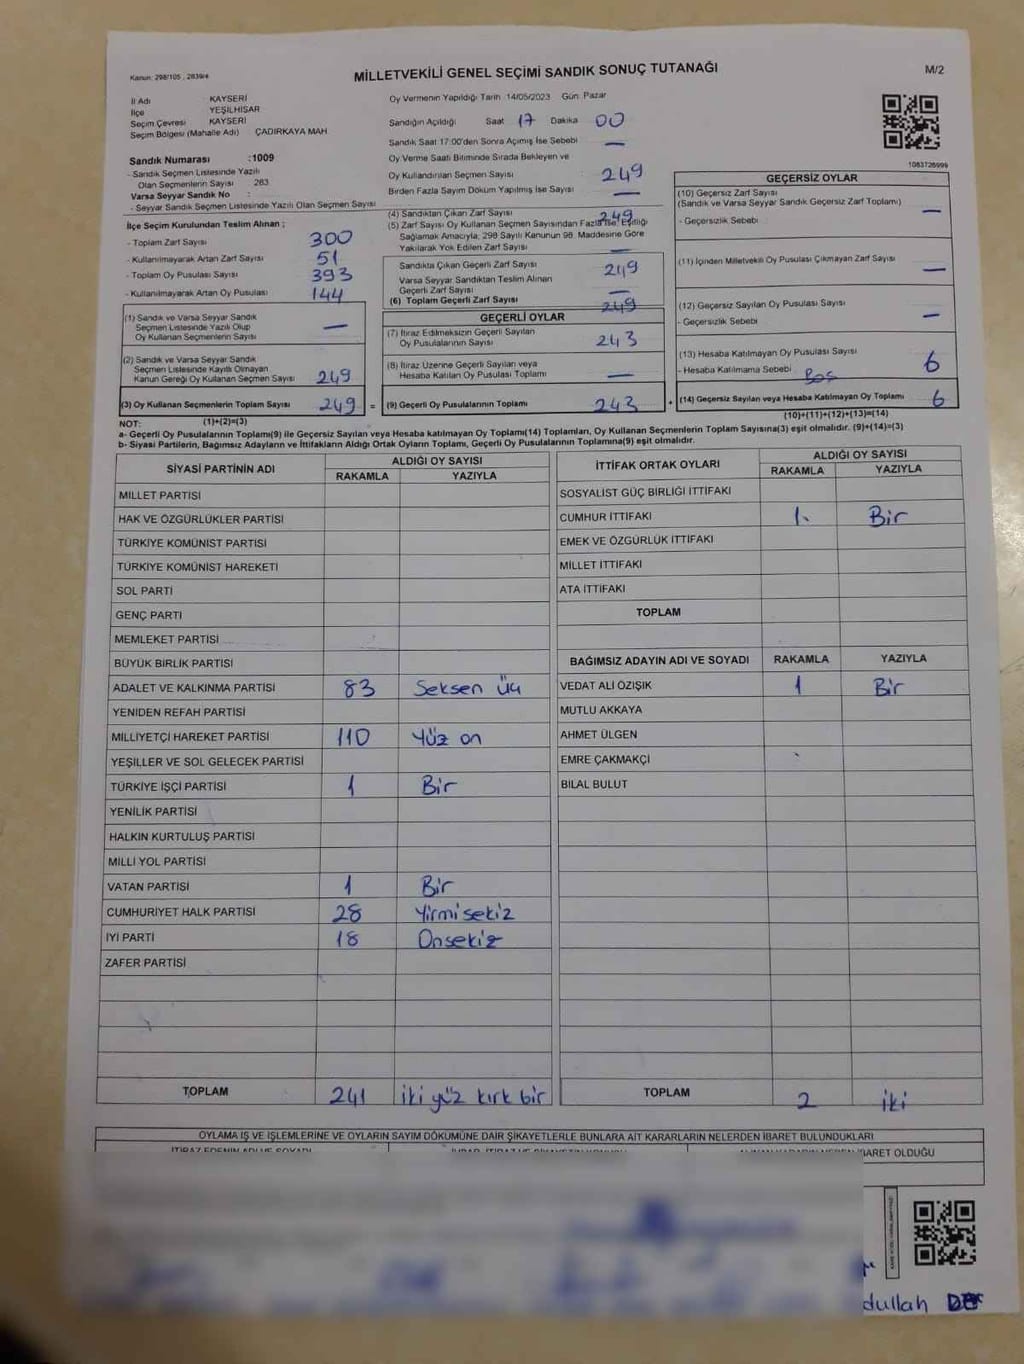 Kanun: 298/105 , 2839/e
MİLLETVEKİLİ GENEL SEÇİMİ SANDIK SONUÇ TUTANAĞI
M/2
İl Adı KAYSERİ
İlçe YEŞİLHİSAR
Seçim Çevresi KAYSERİ
Seçim Bölgesi (Mahalle Adı) ÇADIRKAYA MAH
Sandık Numarası :1009
- Sandık Seçmen Listesinde Yazılı
Olan Seçmenlerin Sayısı : 283
Varsa Seyyar Sandık No :
- Seyyar Sandık Seçmen Listesinde Yazılı Olan Seçmen Sayısı
İlçe Seçim Kurulundan Teslim Alınan ;
- Toplam Zarf Sayısı 300
- Kullanılmayarak Artan Zarf Sayısı 51
- Toplam Oy Pusulası Sayısı 393
- Kullanılmayarak Artan Oy Pusulası 144
(1) Sandık ve Varsa Seyyar Sandık
Seçmen Listesinde Yazılı Olup
Oy Kullanan Seçmenlerin Sayısı —
(2) Sandık ve Varsa Seyyar Sandık
Seçmen Listesinde Kayıtlı Olmayan
Kanun Gereği Oy Kullanan Seçmen Sayısı 249
(3) Oy Kullanan Seçmenlerin Toplam Sayısı 249 =
Oy Vermenin Yapıldığı Tarih 14/05/2023 Gün Pazar
Sandığın Açıldığı Saat 17 Dakika 00
Sandık Saat 17:00'den Sonra Açılmış İse Sebebi —
Oy Verme Saati Bitiminde Sırada Bekleyen ve
Oy Kullandırılan Seçmen Sayısı 249
Birden Fazla Sayım Döküm Yapılmış İse Sayısı —
(4) Sandıktan Çıkan Zarf Sayısı 249
(5) Zarf Sayısı Oy Kullanan Seçmen Sayısından Fazla İse, Eşitliği
Sağlamak Amacıyla, 298 Sayılı Kanunun 98. Maddesine Göre
Yakılarak Yok Edilen Zarf Sayısı —
Sandıkta Çıkan Geçerli Zarf Sayısı 249
Varsa Seyyar Sandıktan Teslim Alınan
Geçerli Zarf Sayısı —
(6) Toplam Geçerli Zarf Sayısı 249
GEÇERLİ OYLAR
(7) İtiraz Edilmeksizin Geçerli Sayılan
Oy Pusulalarının Sayısı 243
(8) İtiraz Üzerine Geçerli Sayılan veya
Hesaba Katılan Oy Pusulası Toplamı —
(9) Geçerli Oy Pusulalarının Toplamı 243 +
1083726999
GEÇERSİZ OYLAR
(10) Geçersiz Zarf Sayısı
(Sandık ve Varsa Seyyar Sandık Geçersiz Zarf Toplamı) —
- Geçersizlik Sebebi
(11) İçinden Milletvekili Oy Pusulası Çıkmayan Zarf Sayısı —
(12) Geçersiz Sayılan Oy Pusulası Sayısı —
- Geçersizlik Sebebi
(13) Hesaba Katılmayan Oy Pusulası Sayısı 6
- Hesaba Katılmama Sebebi Boş
(14) Geçersiz Sayılan veya Hesaba Katılmayan Oy Toplamı 6
NOT: (1)+(2)=(3)
(10)+(11)+(12)+(13)=(14)
a- Geçerli Oy Pusulalarının Toplamı(9) ile Geçersiz Sayılan veya Hesaba katılmayan Oy Toplamı(14) Toplamları, Oy Kullanan Seçmenlerin Toplam Sayısına(3) eşit olmalıdır. (9)+(14)=(3)
b- Siyasi Partilerin, Bağımsız Adayların ve İttifakların Aldığı Ortak Oyların Toplamı, Geçerli Oy Pusulalarının Toplamına(9) eşit olmalıdır.
SİYASİ PARTİNİN ADI ALDIĞI OY SAYISI
RAKAMLA YAZIYLA
MİLLET PARTİSİ
HAK VE ÖZGÜRLÜKLER PARTİSİ
TÜRKİYE KOMÜNİST PARTİSİ
TÜRKİYE KOMÜNİST HAREKETİ
SOL PARTİ
GENÇ PARTİ
MEMLEKET PARTİSİ
BÜYÜK BİRLİK PARTİSİ
ADALET VE KALKINMA PARTİSİ 83 Seksen Üç
YENİDEN REFAH PARTİSİ
MİLLİYETÇİ HAREKET PARTİSİ 110 Yüz on
YEŞİLLER VE SOL GELECEK PARTİSİ
TÜRKİYE İŞÇİ PARTİSİ 1 Bir
YENİLİK PARTİSİ
HALKIN KURTULUŞ PARTİSİ
MİLLİ YOL PARTİSİ
VATAN PARTİSİ 1 Bir
CUMHURİYET HALK PARTİSİ 28 Yirmisekiz
İYİ PARTİ 18 Onsekiz
ZAFER PARTİSİ
TOPLAM 241 iki yüz kırk bir
İTTİFAK ORTAK OYLARI ALDIĞI OY SAYISI
RAKAMLA YAZIYLA
SOSYALİST GÜÇ BİRLİĞİ İTTİFAKI
CUMHUR İTTİFAKI 1. Bir
EMEK VE ÖZGÜRLÜK İTTİFAKI
MİLLET İTTİFAKI
ATA İTTİFAKI
TOPLAM
BAĞIMSIZ ADAYIN ADI VE SOYADI RAKAMLA YAZIYLA
VEDAT ALİ ÖZIŞIK 1 Bir
MUTLU AKKAYA
AHMET ÜLGEN
EMRE ÇAKMAKÇİ
BİLAL BULUT
TOPLAM 2 iki
OYLAMA İŞ VE İŞLEMLERİNE VE OYLARIN SAYIM DÖKÜMÜNE DAİR ŞİKAYETLERLE BUNLARA AİT KARARLARIN NELERDEN İBARET BULUNDUKLARI
İTİRAZ EDENİN ADI VE SOYADI
İBARET OLDUĞU
dullah